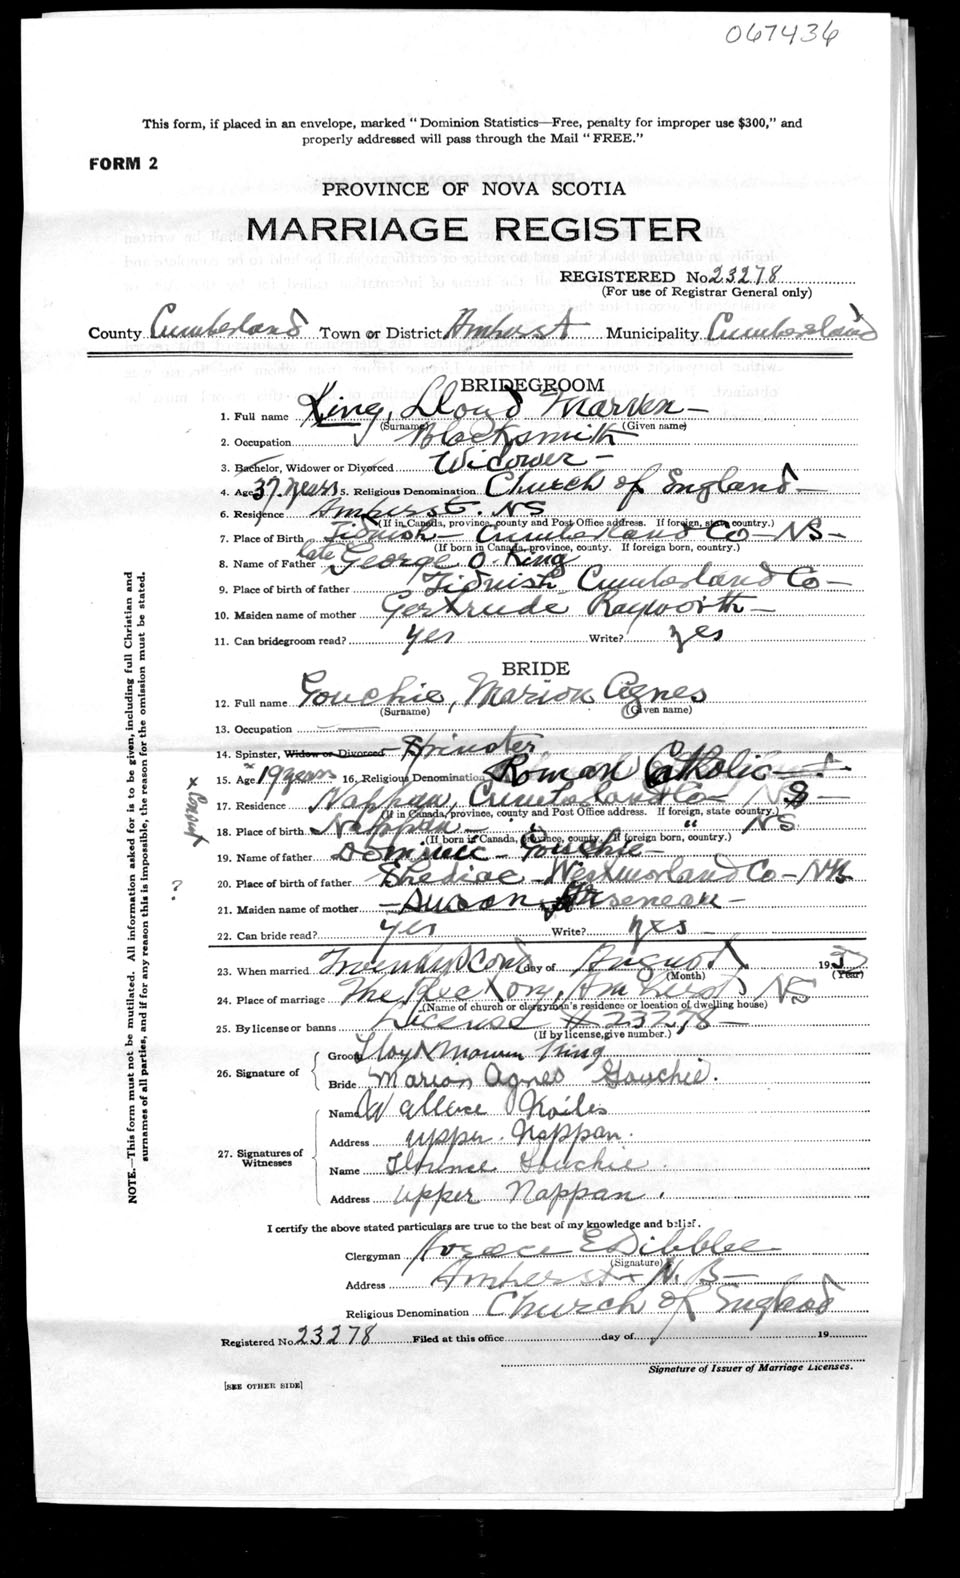 067436
This form, if placed in an envelope, marked " Dominion Statistics—Free, penalty for improper use $300," and
properly addressed will pass through the Mail " FREE."
FORM 2
PROVINCE OF NOVA SCOTIA
MARRIAGE REGISTER
REGISTERED No. 23278
(For use of Registrar General only)
County Cumberland Town or District Amherst Municipality Cumberland
BRIDEGROOM
1. Full name King, Lloyd Marven
(Surname) (Given name)
2. Occupation Blacksmith
3. Bachelor, Widower or Divorced Widower
4. Age 37 years 5. Religious Denomination Church of England
6. Residence Amherst. NS
(If in Canada, province, county and Post Office address. If foreign, state country.)
7. Place of Birth Tidnish — Cumberland Co — NS —
(If born in Canada, province, county. If foreign born, country.)
8. Name of Father late George O. King
9. Place of birth of father Tidnish Cumberland Co —
10. Maiden name of mother Gertrude Rayworth —
11. Can bridegroom read? yes Write? yes
BRIDE
12. Full name Gouchie, Marion Agnes
(Surname) (Given name)
13. Occupation
14. Spinster, Widow or Divorced Spinster
15. Age 19 years 16. Religious Denomination Roman Catholic
17. Residence Nappan, Cumberland Co — NS —
(If in Canada, province, county and Post Office address. If foreign, state country.)
18. Place of birth Nappan — " NS
(If born in Canada, province, county. If foreign born, country.)
19. Name of father Dominic Gouchie —
20. Place of birth of father Shediac Westmorland Co — NB
21. Maiden name of mother — Susan Arseneau —
22. Can bride read? yes Write? yes
23. When married Twenty second day of August 193
(Month) (Year)
24. Place of marriage The Rectory, Amherst NS
(Name of church or clergyman's residence or location of dwelling house)
25. By license or banns License # 23278 —
(If by license, give number.)
26. Signature of
Groom Lloyd Marven King
Bride Marion Agnes Gouchie.
27. Signatures of Witnesses
Name Wallace
Address Upper Nappan.
Name Florence Gouchie
Address Upper Nappan.
I certify the above stated particulars are true to the best of my knowledge and belief.
Clergyman Horace E Dibblee
(Signature)
Address Amherst N.B —
Religious Denomination Church of England
Registered No. 23278 Filed at this office day of 19
Signature of Issuer of Marriage Licenses.
[SEE OTHER SIDE]
NOTE.—This form must not be mutilated. All information asked for is to be given, including full Christian and
surnames of all parties, and if for any reason this is impossible, the reason for the omission must be stated.
x Consent
?